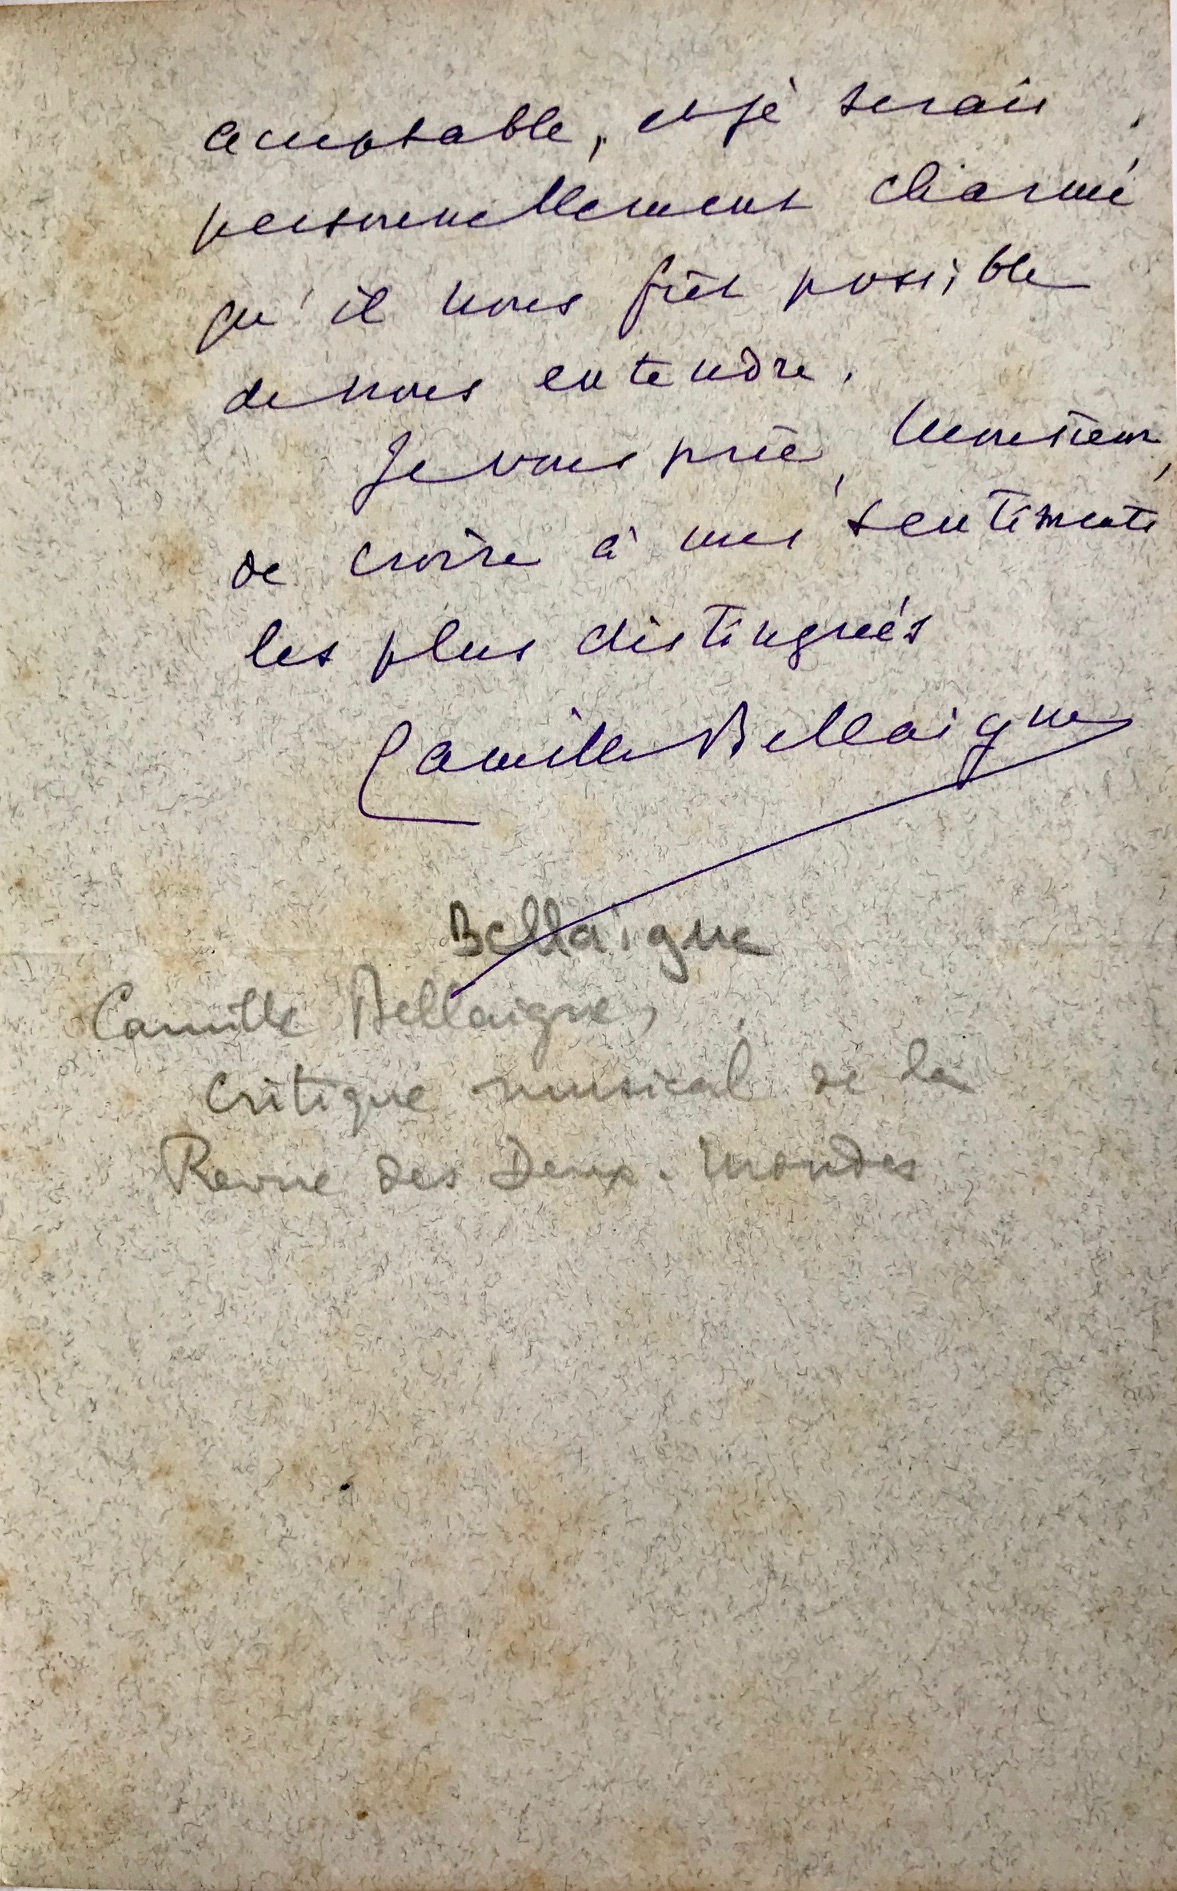 acceptable, et je serais
personnellement charmé
qu'il nous fût possible
de nous entendre.
Je vous prie, Monsieur,
de croire à mes sentiments
les plus distingués
Camille Bellaigue
Bellaigue
Camille Bellaigue,
critique musical de la
Revue des Deux-Mondes